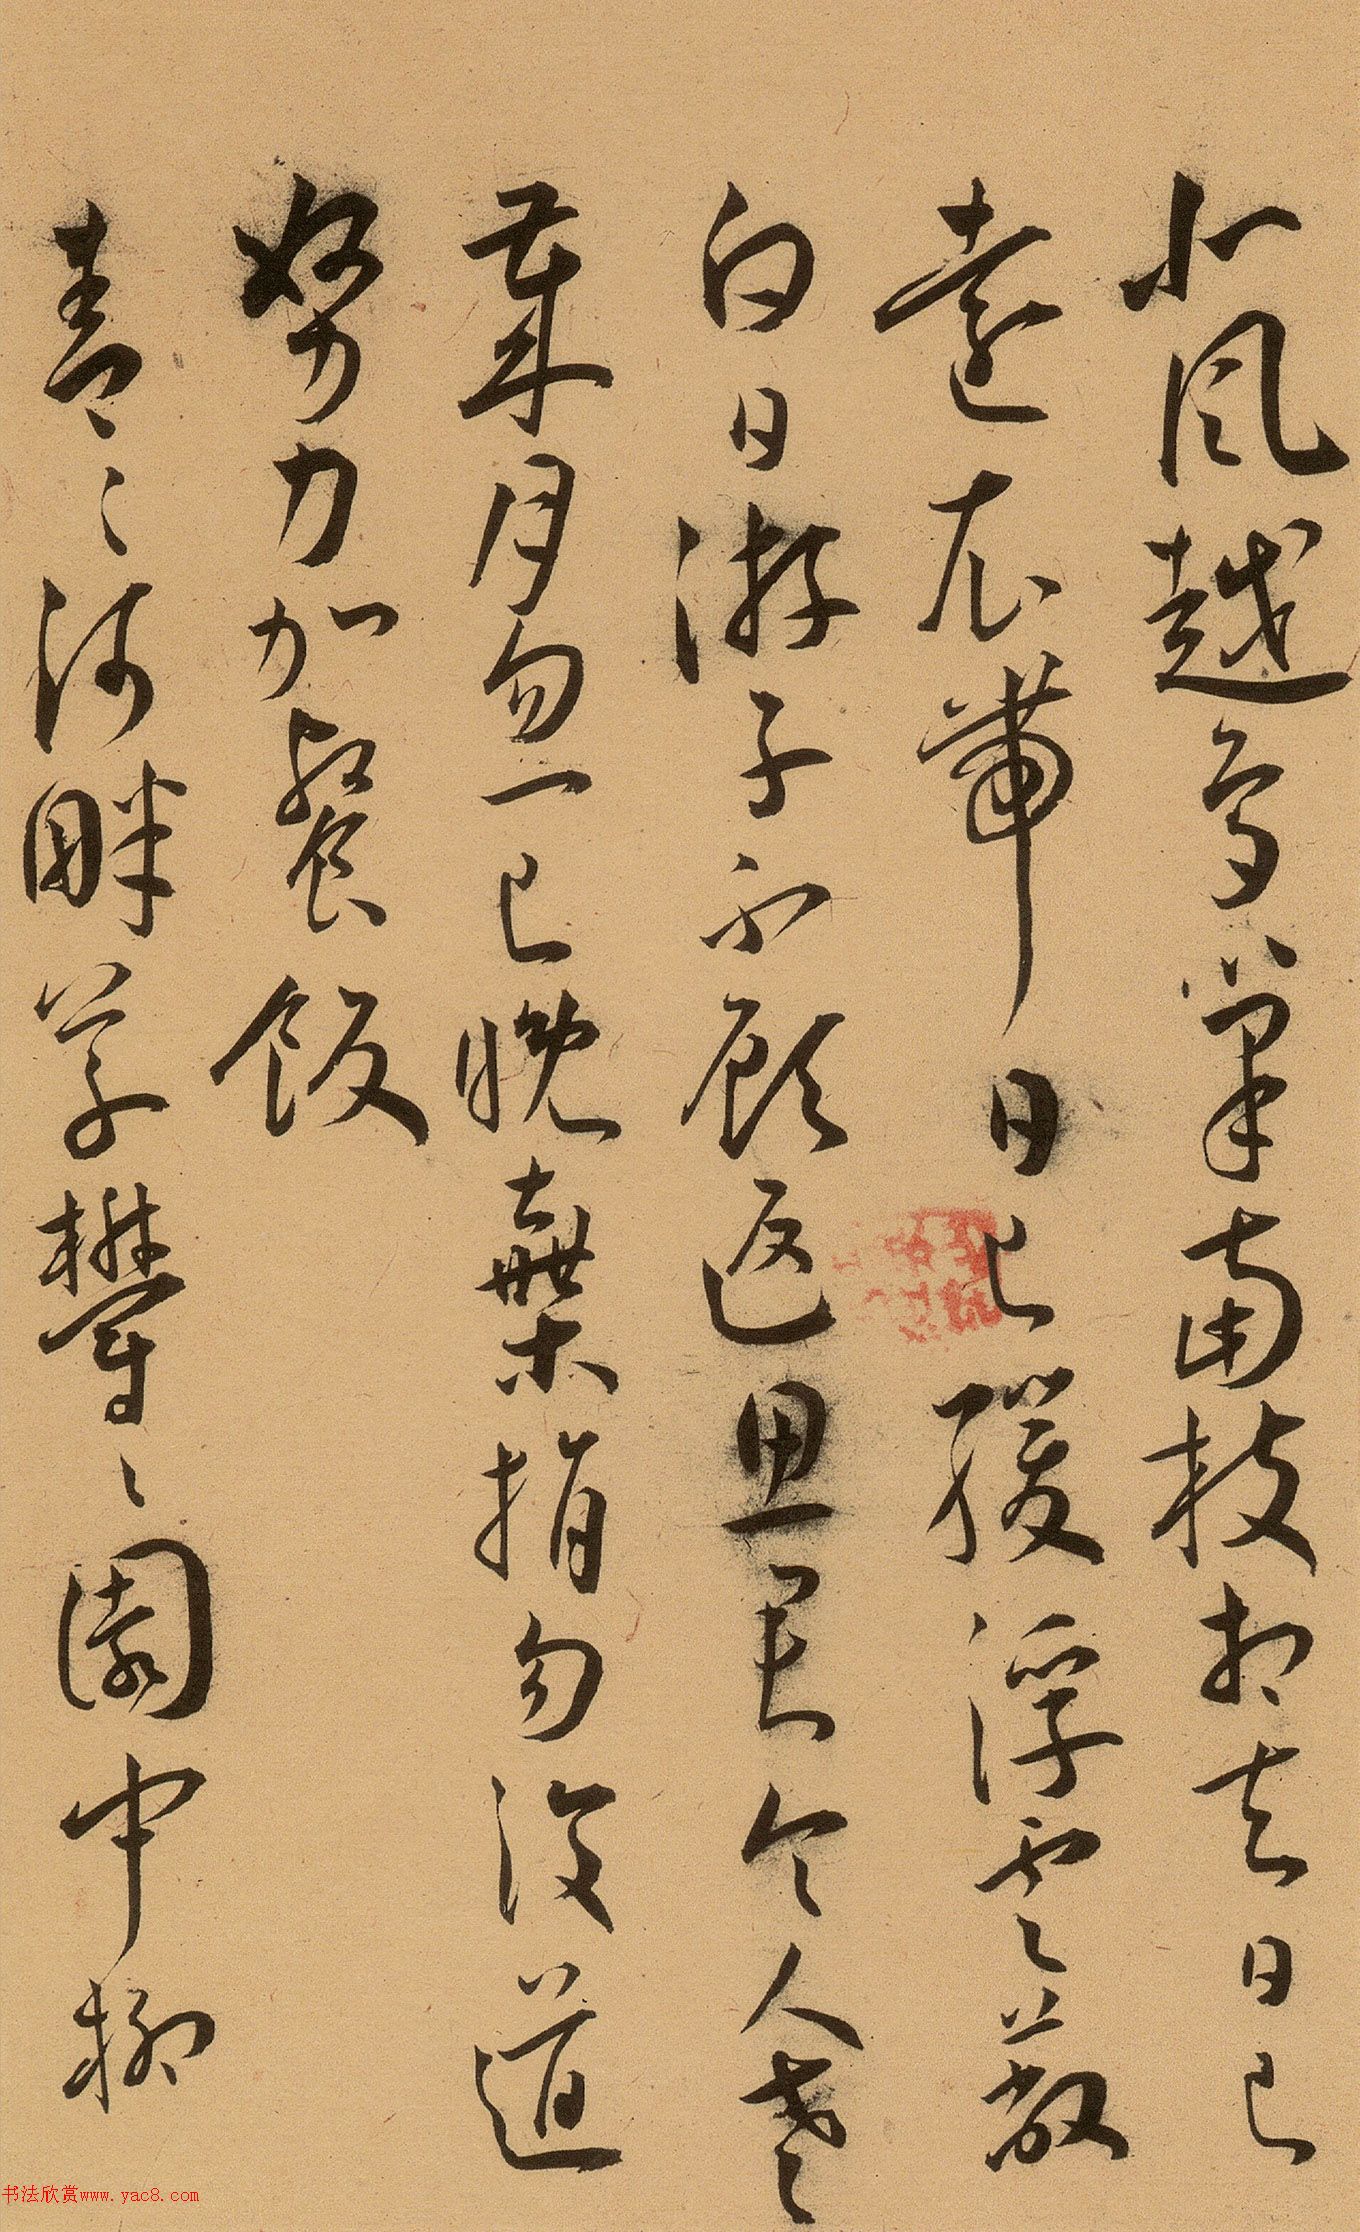 北風越鳥巢南枝相去日已
遠衣帶日已緩浮雲蔽
白日游子不顧返思君令人老
歲月忽已晚棄捐勿復道
努力加餐飯
青々河畔草鬱々園中柳
书法欣赏www.yac8.com